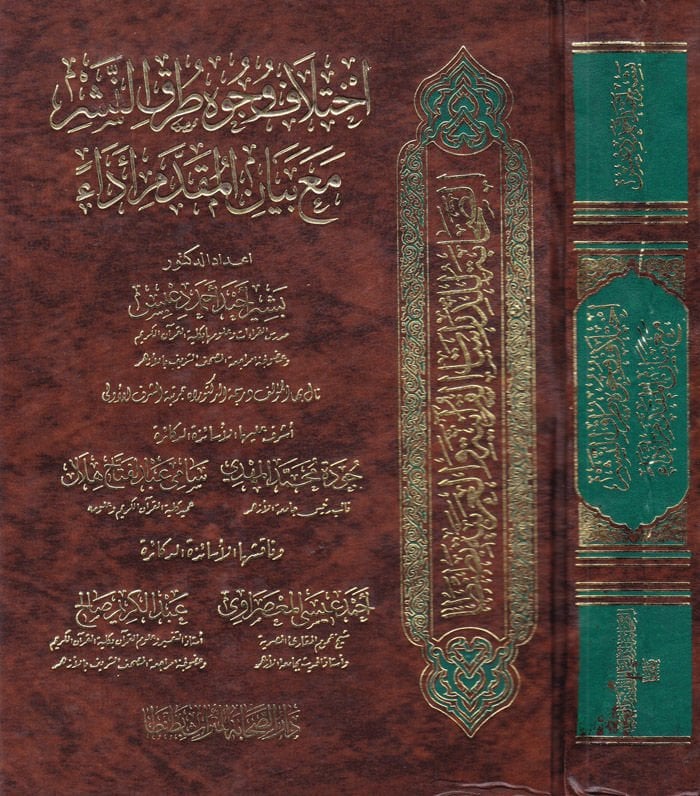 اختلاف وجوه طرق النشر
مع بيان المقدم أداء
إعداد الدكتور
بشير أحمد أحمد دعبس
مدرس القراءات وعلومها بكلية القرآن الكريم
وعضو لجنة مراجعة المصحف الشريف بالأزهر
نال بها المؤلف درجة الدكتوراه بمرتبة الشرف الأولى
أشرف عليها الأساتذة الدكاترة
جودة محمد المهدي
سامي عبد الفتاح هلال
نائب رئيس جامعة الأزهر
عميد كلية القرآن الكريم وعلومه
وناقشها الأساتذة الدكاترة
أحمد عيسى المعصراوي
عبد الكريم صالح
شيخ عموم المقارئ المصرية
وأستاذ الحديث بجامعة الأزهر
أستاذ التفسير وعلوم القرآن بكلية القرآن الكريم
وعضو لجنة مراجعة المصحف الشريف بالأزهر
دار الصحابة للتراث بطنطا
اختلاف وجوه طرق النشر
مع بيان المقدم أداء